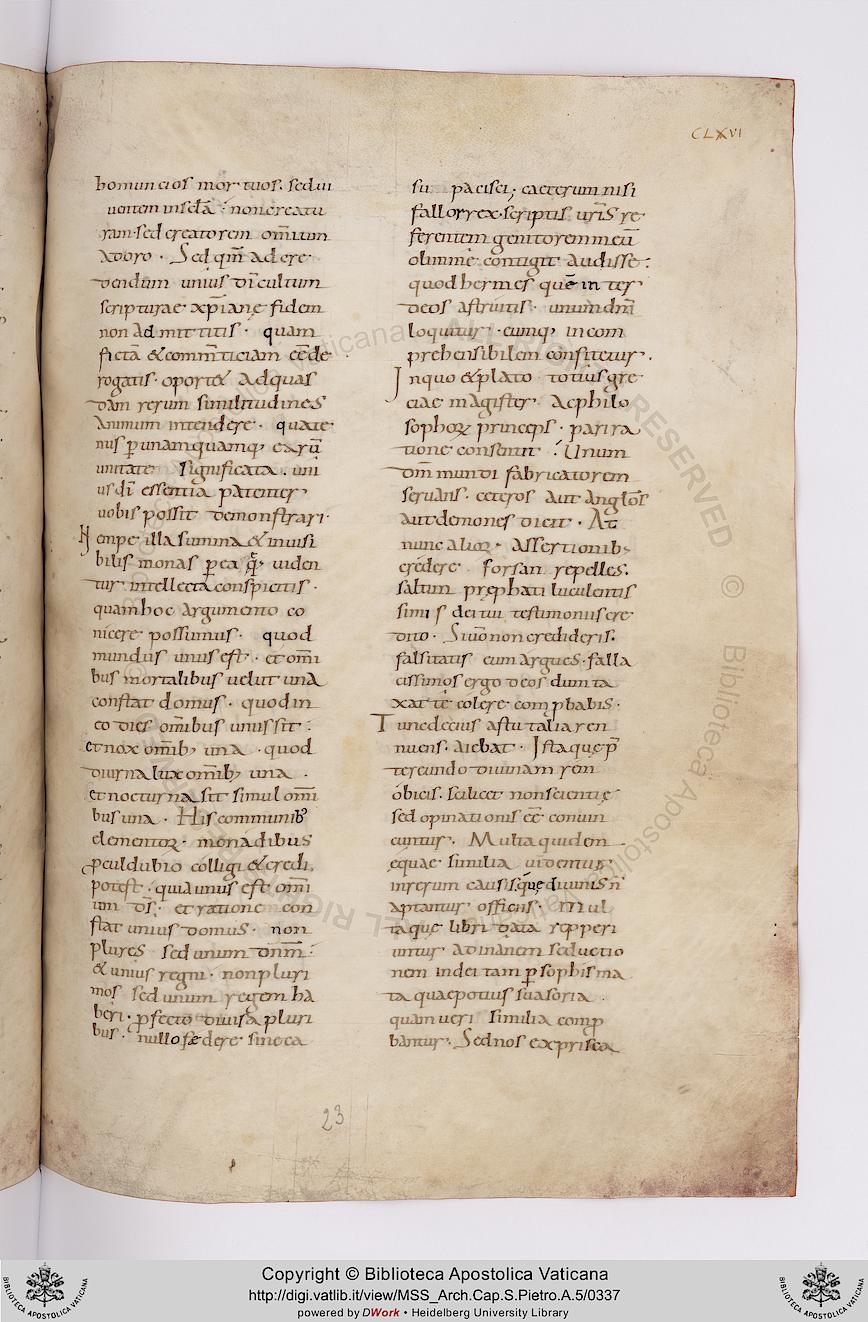 CLXVI
homuncios mortuos. sed ui
uentem in sęcl̄a. non creatu
ram sed creatorem omnium
adoro. Sed qm̄ ad cre
dendum unius dī cultum
scripturae xp̄ianę fidem
non admittitis. quam
fictā & comm̄ticiam eē de
rogatis. oport& ad quas
dam rerum similitudines
animum intendere. quate
nus p̱ unam quamq; earū
unitate significata. uni
us dī essentia patenter
uobis possit demonstrari.
Nempe illa summa & inuisi
bilis monas p̱ ea quę uiden
tur intellecta conspicitis.
quam hoc argumento co
nicere possumus. quod
mundus unus est. et om̄i
bus mortalibus uelut una
constat domus. quod in
eo dies om̄ibus unus sit.
et nox om̄ib; una. quod
diurna lux om̄ib; una.
et nocturna sit simul om̄i
bus una. His communib;
elementoꝝ monadibus
p̱culdubio colligi & credi
potest. quia unus est om̄i
um dī. et ratione con
stat unius domus. non
plures sed unum dnm̄.
& unius regni. non pluri
mos sed unum regem ha
beri. p̱fecto diuisa pluri
bus. nullo fædere sine ca
su pacisci; caeterum nisi
fallor rex. scriptis ur̄is re
ferentem genitorem meū
olim me contigit audisse.
quod hermes quē inter
deos astruitis. unum dm̄
loquitur. eumq; incom
prehensibilem confitetur.
Inquo & plato totius gre
ciae magister. ac philo
sophoꝝ princeps. pari ra
tione consentit. Unum
dm̄ mundi fabricatorem
seruans. ceteros aut anglos
aut demones dicit. At
nunc alioꝝ assertionib;
credere forsan repelles.
saltim prephati luculentis
simi s dei tui testimoniis cre
dito. Si uero non credideris.
falsitatis eum argues. falla
cissimos ergo deos dum ta
xat te colere comp̱babis.
Tunc decius astu talia ren
nuens. aiebat. Ista quę p̱
tereundo diuinam ren
obicis. scilicet non scientie
sed opinationis eē conuin
cuntur. Multa quidem
equae similia uidentur
in rerum causis. quę diuinis n̄
aptantur officiis. Mul
taque libri data repperi
untur ad inanem seductio
nem indeita p̱ sophisma
ta quae potius suasoria
quam ueri similia comp̱
bantur. Sed nos ex prisca
23
Copyright © Biblioteca Apostolica Vaticana
http://digi.vatlib.it/view/MSS_Arch.Cap.S.Pietro.A.5/0337
powered by DWork • Heidelberg University Library
BIBLIOTECA APOSTOLICA VATICANA
BIBLIOTECA APOSTOLICA VATICANA